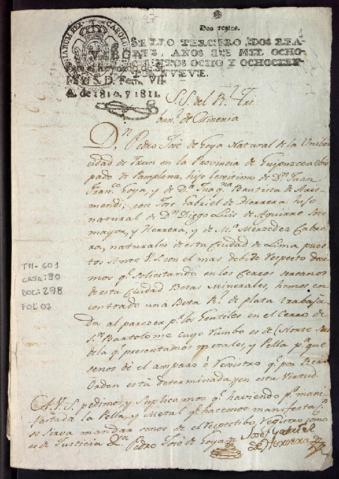 Dos reales.
SELLO TERCERO, DOS REA-
LES, AÑOS DE MIL OCHO-
CIENTOS OCHO Y OCHOCIEN-
TOS NUEVE.
de 1810, y 1811.
S.S. del Rl. Tri
bunl. de Minería
Dn. Pedro José de Goya Natural de la Unibersi
dad de Irun en la Provincia de Guipuzcoa Obis
pado de Pamplona, hijo legitimo de Dn. Juan
Franco. Goya, y de Da. Joaqna. Bautista de Aris
mendi; con José Gabriel de Herrera hijo
natural de Dn. Diego Luis de Aguiano Soto
mayor, y Herrera, y de Ma. Mercedes Cabre
ra, naturales de esta Ciudad de Lima, pues
tos Ante V.S. con el mas debido respeto deci
mos qe. solicitando en los Cerros cercanos
de esta Ciudad Betas Minerales, hemos en
contrado una Beta Rl. de plata trabaja
da al parecer pr. los Gentiles en el Cerro de
Sn. Bartolome cuyo rumbo es de Norte
qe. presentamos metales, y Pella pa. qe.
senos de el amparo
Orden está determinada, en esta Virtud
A V.S. pedimos, y Suplicamos qe. haviendo pr. mani
festada la Pella, y Metal qe. hacemos manifestacn.
se sirva mandar senos de el respectibo Registro, como
es de Justicia Dn. Pedro José de Goya José Gabriel
de Herrera
TM-601
CAJA: 80
DOC: 298
FOL: 02